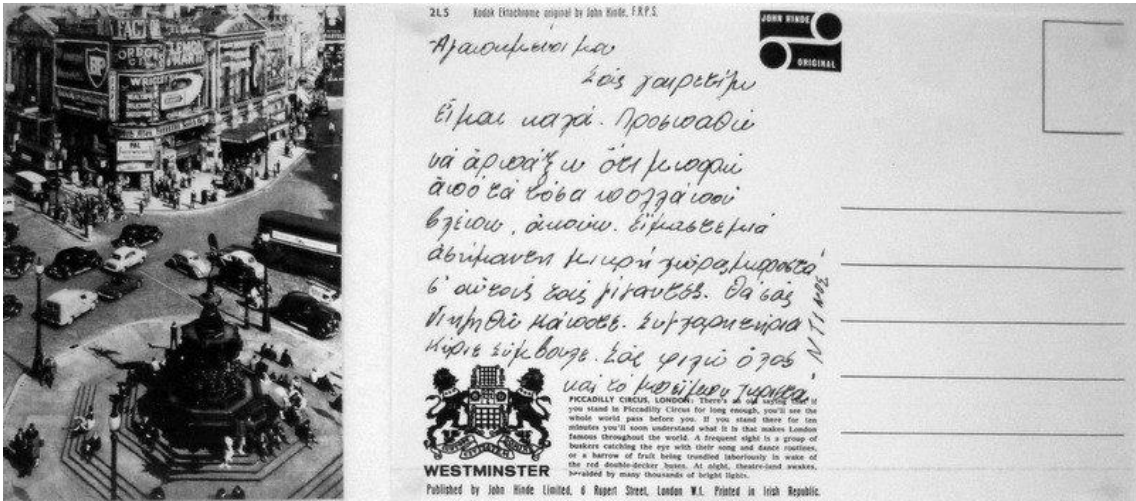 FACTOR
GORDON'S
GIN
BP
LEMON
HART
WRIGLEY'S
PAL
2L5 Kodak Ektachrome original by John Hinde, F.R.P.S.
JOHN HINDE
ORIGINAL
Ἀγαπημένοι μου
Σᾶς χαιρετῶ
Εἶμαι καλά. Προσπαθῶ
νά ἁρπάξω ὅτι μπορῶ
ἀπό τά τόσα πολλά πού
βλέπω, ἀκούω. Εἴμαστε μιά
ἀσήμαντη μικρή χώρα μπροστά
σ' αὐτούς τούς γίγαντες. Θά σᾶς
διηγηθῶ κάποτε. Συγχαρητήρια
Κύριε Σύμβουλε. Σᾶς φιλῶ ὅλους
καί τό
ΝΤΙΝΟΣ
WESTMINSTER
PICCADILLY CIRCUS, LONDON: There's an old saying that if
you stand in Piccadilly Circus for long enough, you'll see the
whole world pass before you. If you stand there for ten
minutes you'll soon understand what it is that makes London
famous throughout the world. A frequent sight is a group of
buskers catching the eye with their song and dance routines,
or a barrow of fruit being trundled laboriously in wake of
the red double-decker buses. At night, theatre-land awakes,
heralded by many thousands of bright lights.
Published by John Hinde Limited, 6 Rupert Street, London W.1. Printed in Irish Republic.